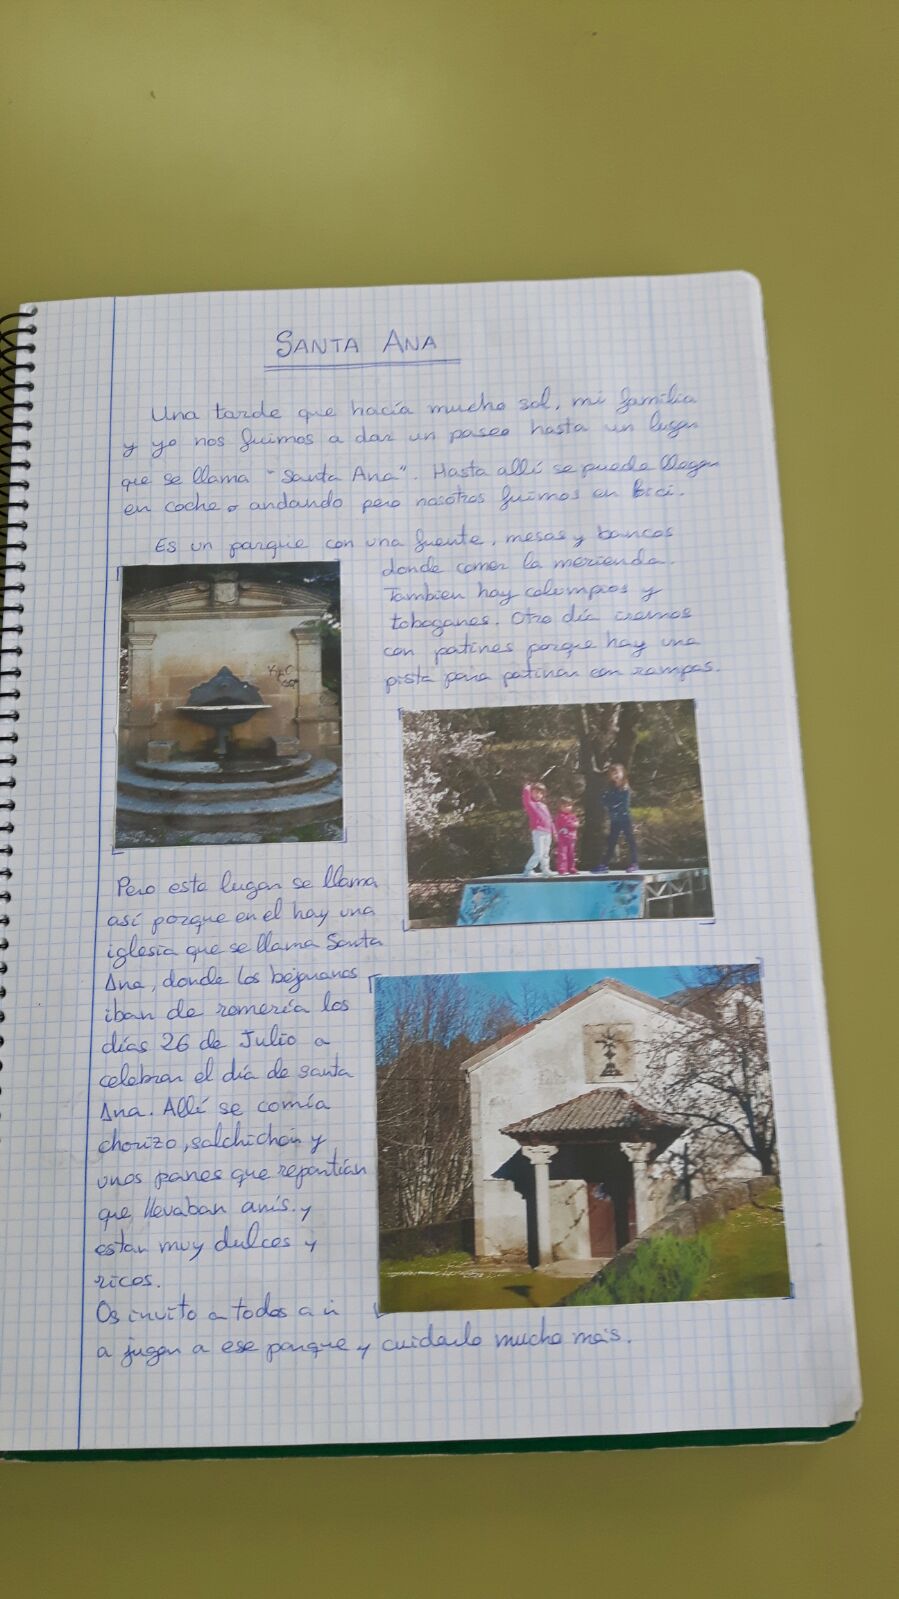 SANTA ANA
Una tarde que hacía mucho sol, mi familia
y yo nos fuimos a dar un paseo hasta un lugar
que se llama "Santa Ana". Hasta allí se puede llegar
en coche o andando pero nosotros fuimos en bici.
Es un parque con una fuente, mesas y bancos
donde comer la merienda.
Tambien hay columpios y
toboganes. Otro día iremos
con patines porque hay una
pista para patinar con rampas.
Pero este lugar se llama
así porque en el hay una
iglesia que se llama Santa
Ana, donde los bejaranos
iban de romería los
días 26 de Julio a
celebrar el día de santa
Ana. Allí se comía
chorizo, salchichón y
unos panes que repartían
que llevaban anís y
estan muy dulces y
ricos.
Os invito a todos a ir
a jugar a ese parque y cuidarlo mucho más.